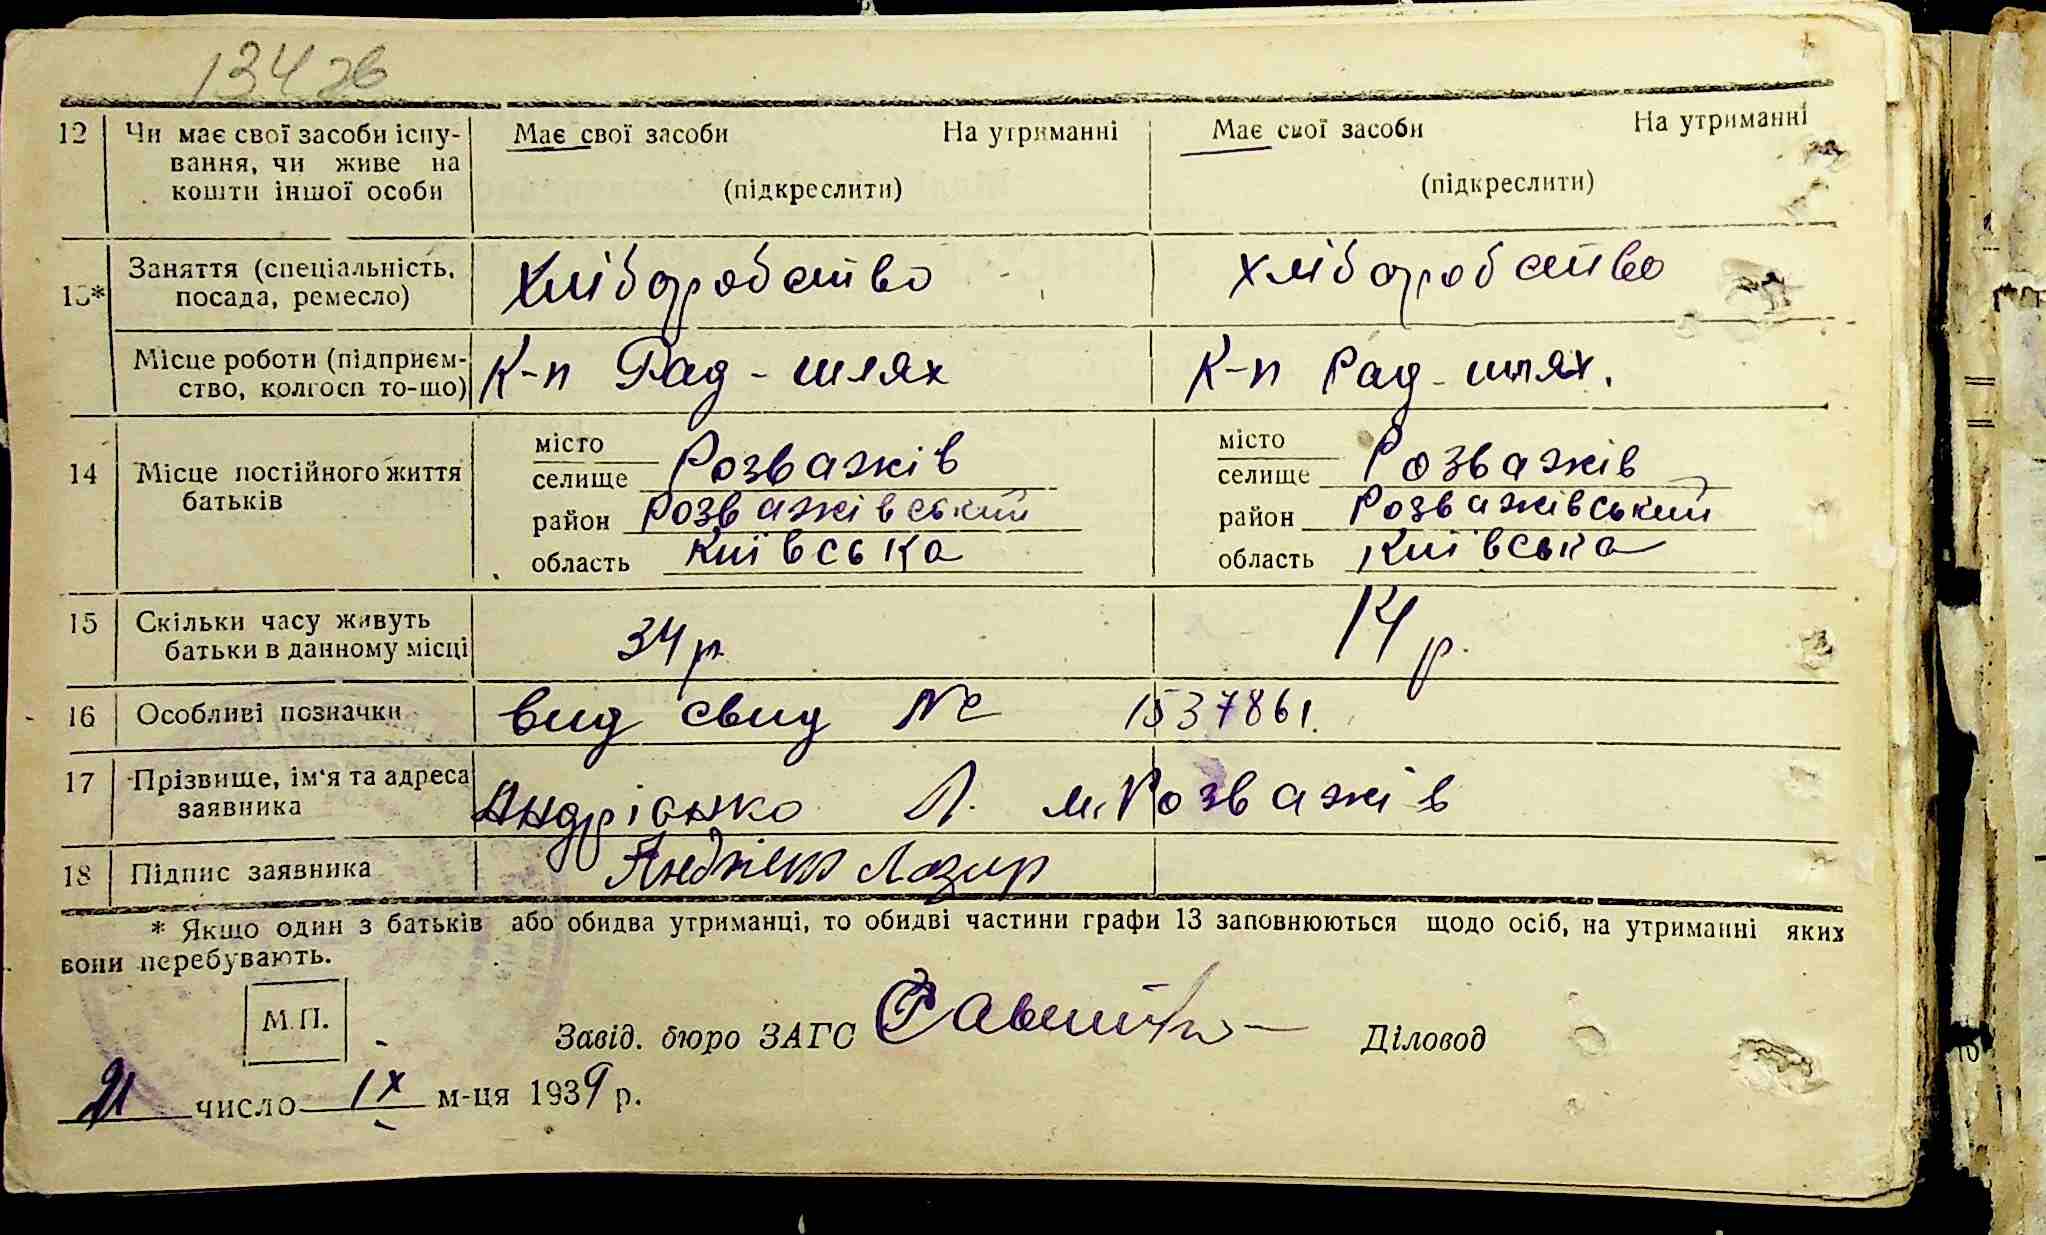 134 зв
12 Чи має свої засоби існу- Має свої засоби На утриманні Має свої засоби На утриманні
вання, чи живе на
кошти іншої особи (підкреслити) (підкреслити)
13* Заняття (спеціальність, Хліборобство хліборобство
посада, ремесло)
Місце роботи (підприєм- К-п Рад-шлях К-п Рад-шлях.
ство, колгосп то-що)
14 Місце постійного життя місто Розважів місто Розважів
батьків селище селище
район Розважівський район Розважівський
область Київська область Київська
15 Скільки часу живуть 34 р. 14 р.
батьки в данному місці
16 Особливі позначки вид свид № 1537861.
17 Прізвище, ім'я та адреса Андрієнко Л. м. Розважів
заявника
18 Підпис заявника Лазар
* Якщо один з батьків або обидва утриманці, то обидві частини графи 13 заповнюються щодо осіб, на утриманні яких
вони перебувають.
М.П.
Завід. бюро ЗАГС Діловод
21 число IX м-ця 1939 р.